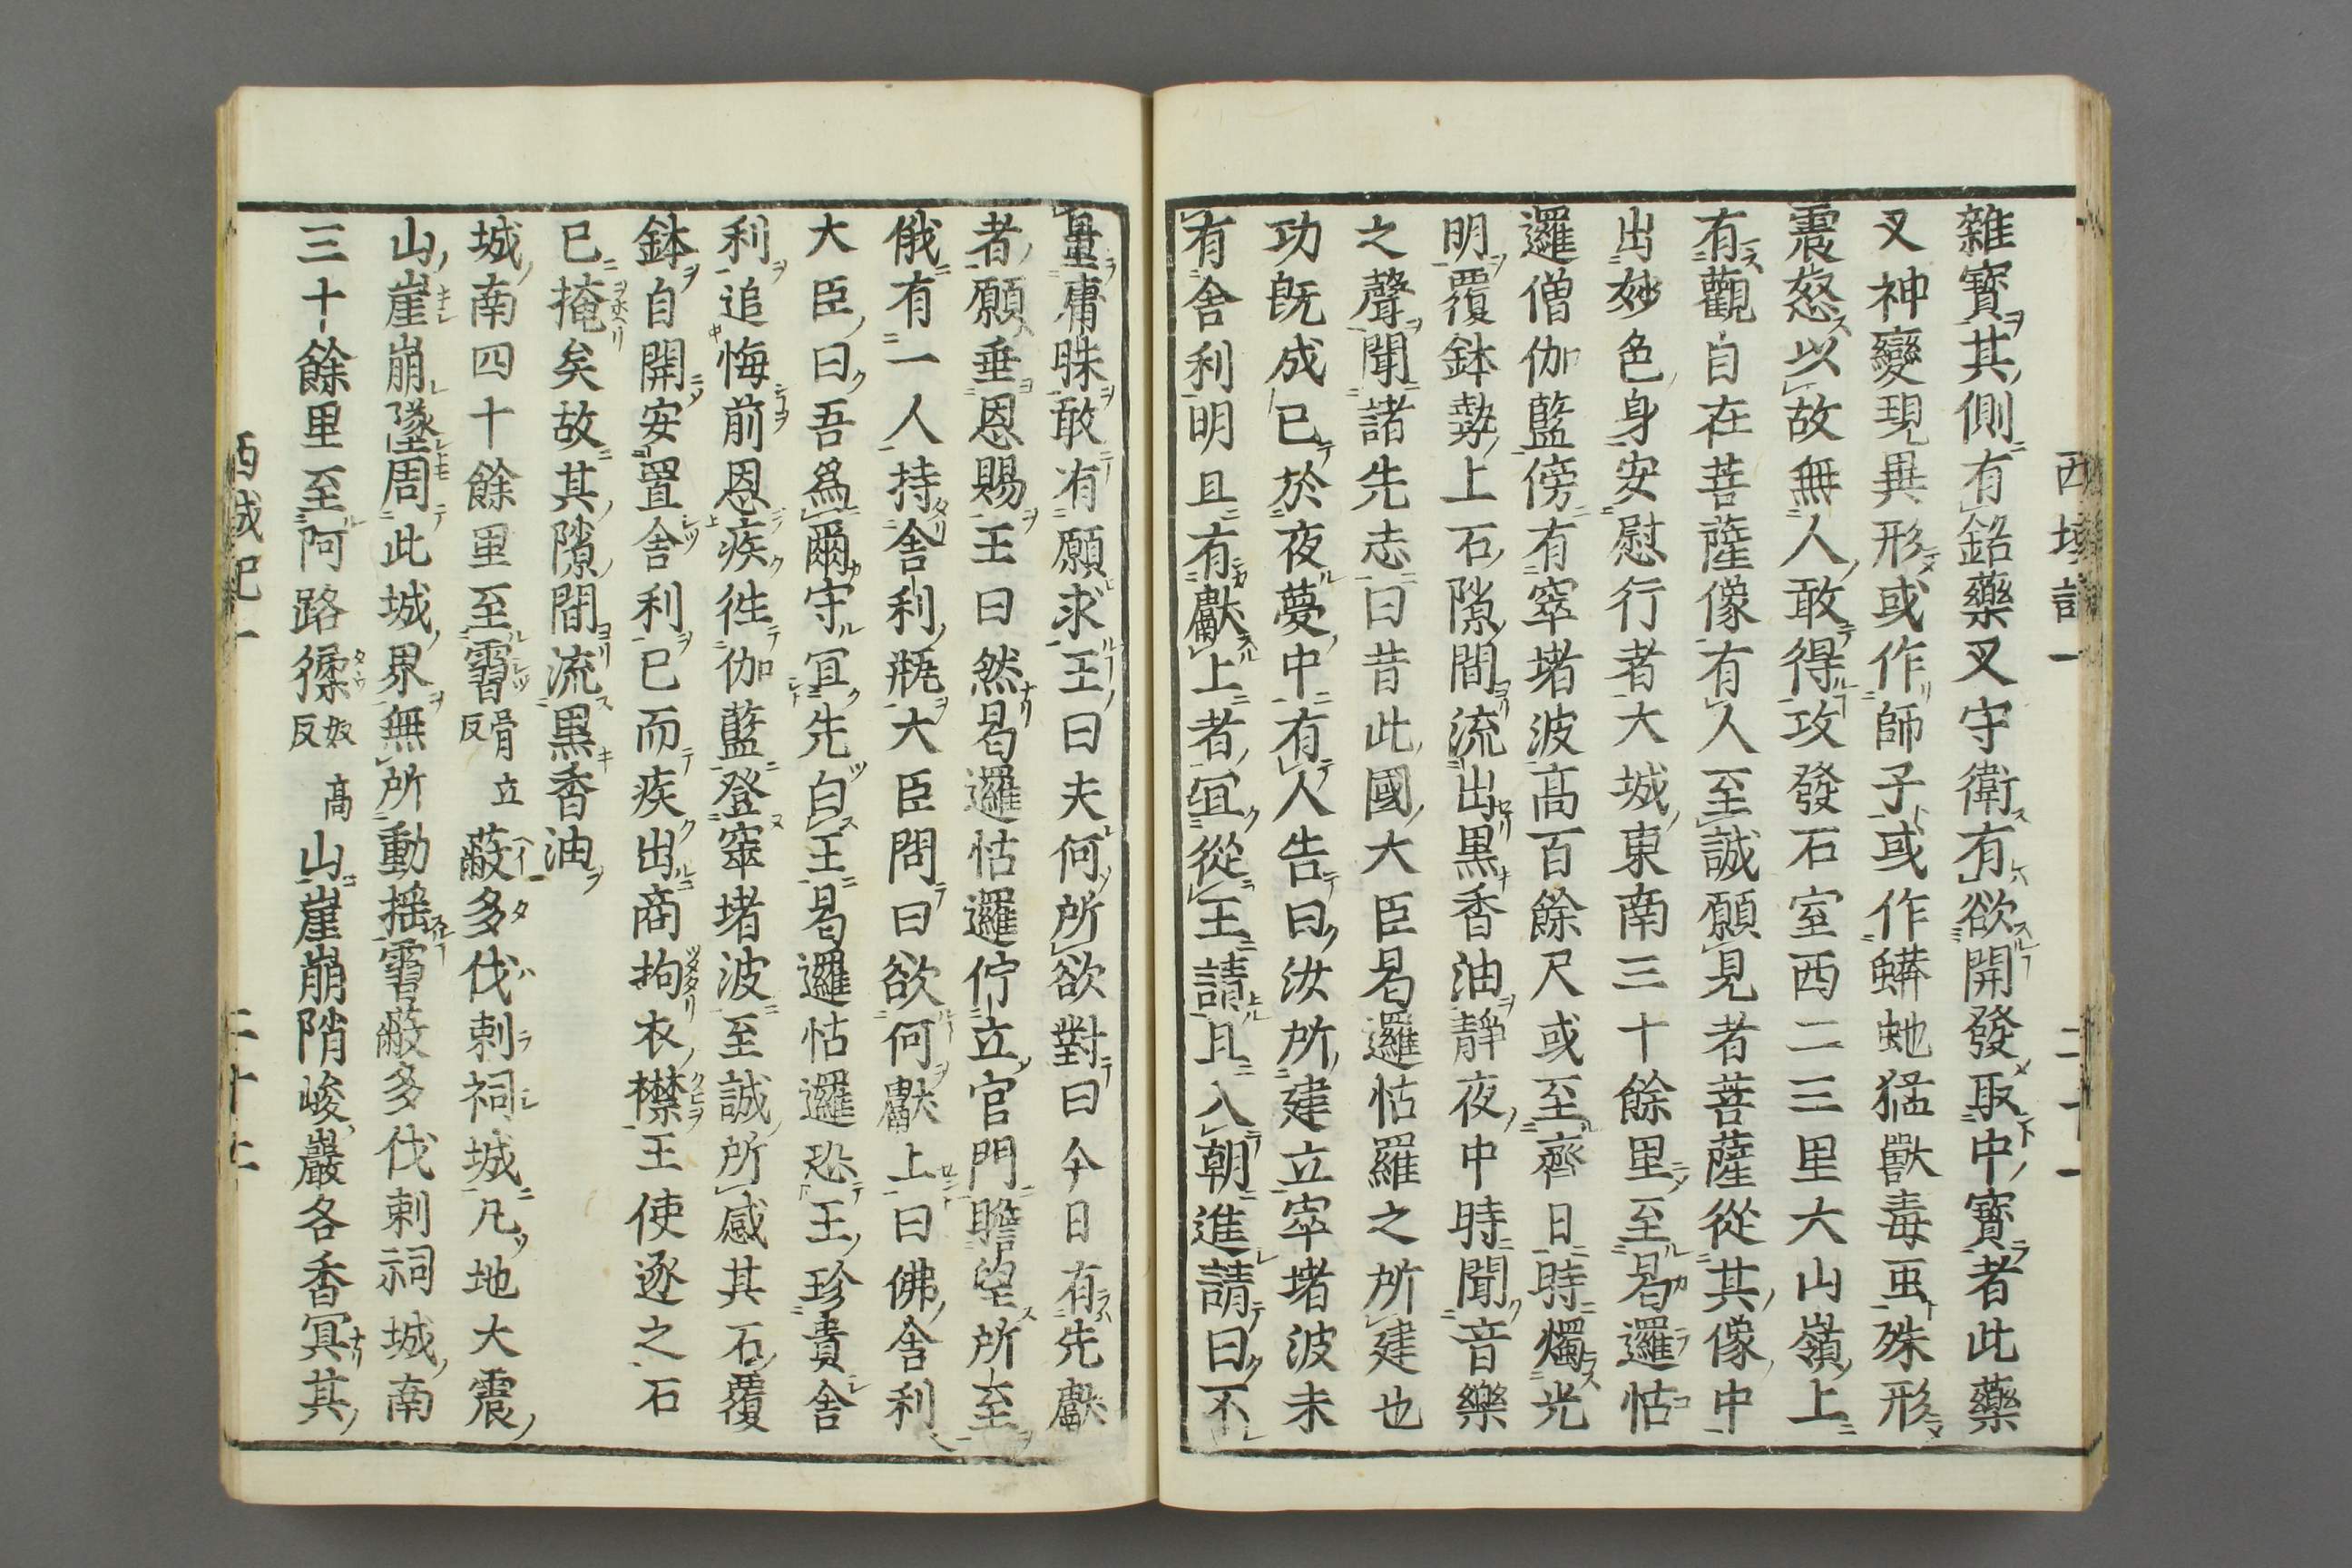 西域記一 二十一
雜寶其側有銘藥叉守衛有欲開發取中寶者此藥
叉神變現異形或作師子或作蟒虵猛獸毒虫殊形
震怒以故無人敢得攻發石室西二三里大山嶺上
有觀自在菩薩像有人至誠願見者菩薩從其像中
出妙色身安慰行者大城東南三十餘里至曷邏怙
邏僧伽藍傍有窣堵波高百餘尺或至齋日時燭光
明覆鉢勢上石隙間流出黑香油靜夜中時聞音樂
之聲聞諸先志曰昔此國大臣曷邏怙羅之所建也
功既成已於夜夢中有人告曰汝所建立窣堵波未
有舍利明旦有獻上者宜從王請旦入朝進請曰不
量庸昧敢有願求王曰夫何所欲對曰今日有先獻
者願垂恩賜王曰然曷邏怙邏佇立官門瞻望所至
俄有一人持舍利瓶大臣問曰欲何獻上曰佛舍利
大臣曰吾爲爾守宜先白王曷邏怙邏恐王珍貴舍
利追悔前恩疾往伽藍登窣堵波至誠所感其石覆
鉢自開安置舍利已而疾出商拘衣襟王使逐之石
已掩矣故其隙間流黑香油
城南四十餘里至霫骨立反蔽多伐剌祠城凡地大震
山崖崩墜周此城界無所動搖霫蔽多伐剌祠城南
三十餘里至阿路猱奴高反山崖崩隋峻巖各香冥其
西域記一 二十二